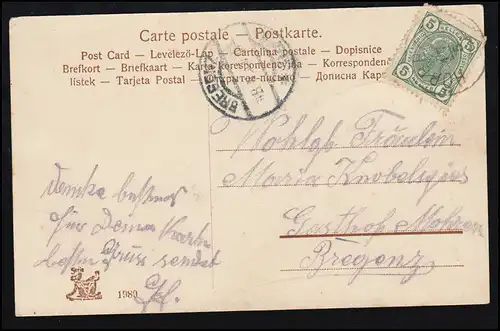 Carte postale – Postkarte.
Post Card – Levelező-Lap – Cartolina postale – Dopisnice
Brefkort – Briefkaart – Karta korespondencyjna – Korresponden
listek – Tarjeta Postal – открытое письмо – Дописна Кар
5 5
5 5
BREGENZ
Wohlgb. Fräulein
Maria
Gasthof Mohren
Bregenz
Danke bestens
für Deine Karte
besten Gruss sendet
1989